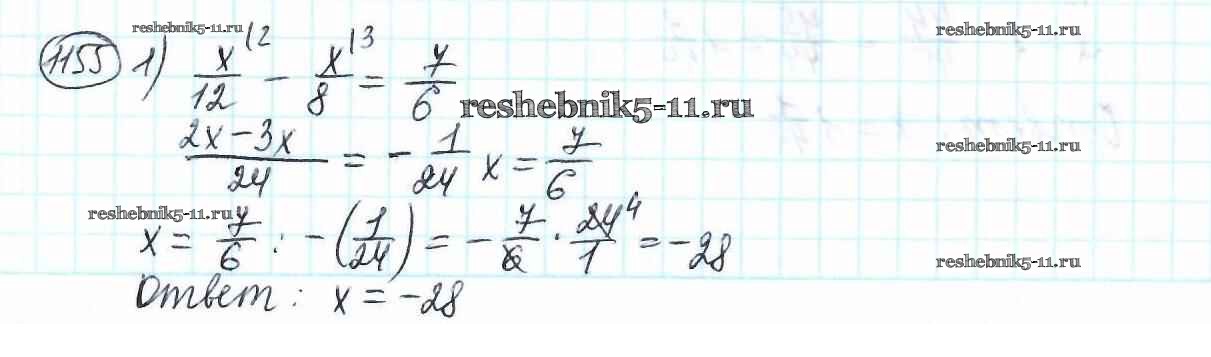 reshebnik5-11.ru
reshebnik5-11.ru
1155 1) x/12 |2 − x/8 |3 = 7/6
reshebnik5-11.ru
(2x − 3x)/24 = − 1/24 x = 7/6
reshebnik5-11.ru
reshebnik5-11.ru
x = 7/6 : −(1/24) = − 7/6 · 24/1 4 = −28
reshebnik5-11.ru
Ответ: x = −28